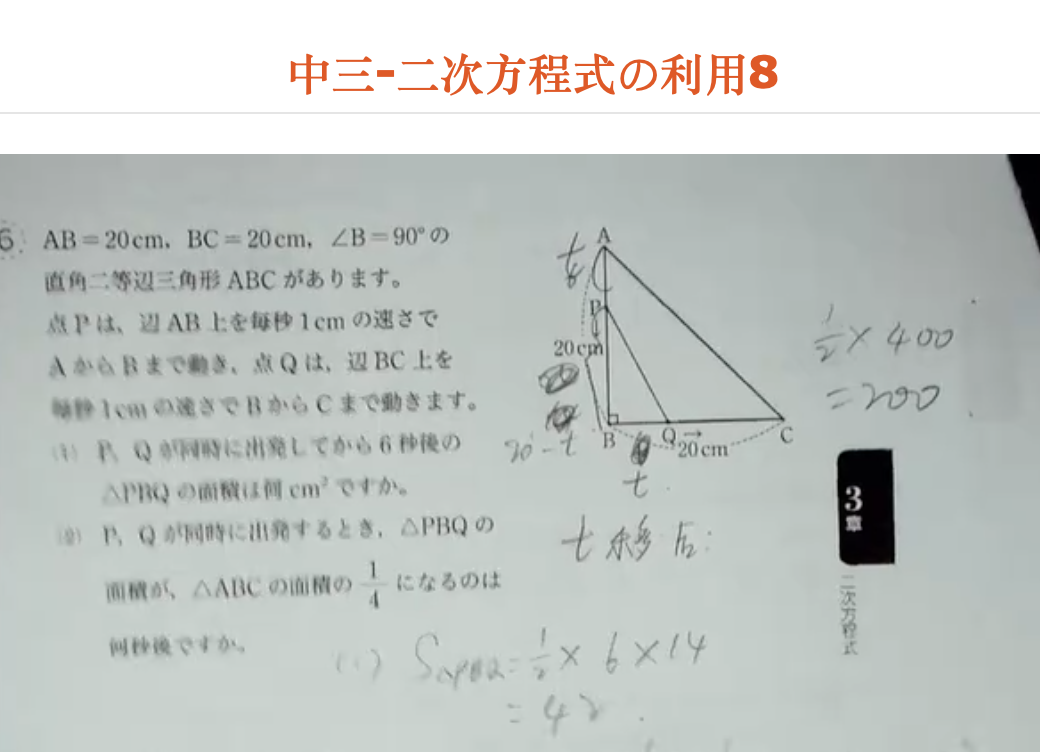 中三-二次方程式の利用8
6. AB=20cm, BC=20cm, ∠B=90°の
直角二等辺三角形 ABC があります。
点Pは、辺 AB 上を毎秒1cm の速さで
AからBまで動き、点Qは、辺BC上を
毎秒1cmの速さでBからCまで動きます。
(1) P, Qが同時に出発してから6秒後の
△PBQの面積は何cm²ですか。
(2) P, Qが同時に出発するとき, △PBQの
面積が, △ABCの面積の 1/4 になるのは
何秒後ですか。
A
t
P
20cm
B
Q→
C
20cm
20-t
t
t秒后:
1/2×400
=200
(1) S△PBQ=1/2×6×14
=42
3
章
二次方程式